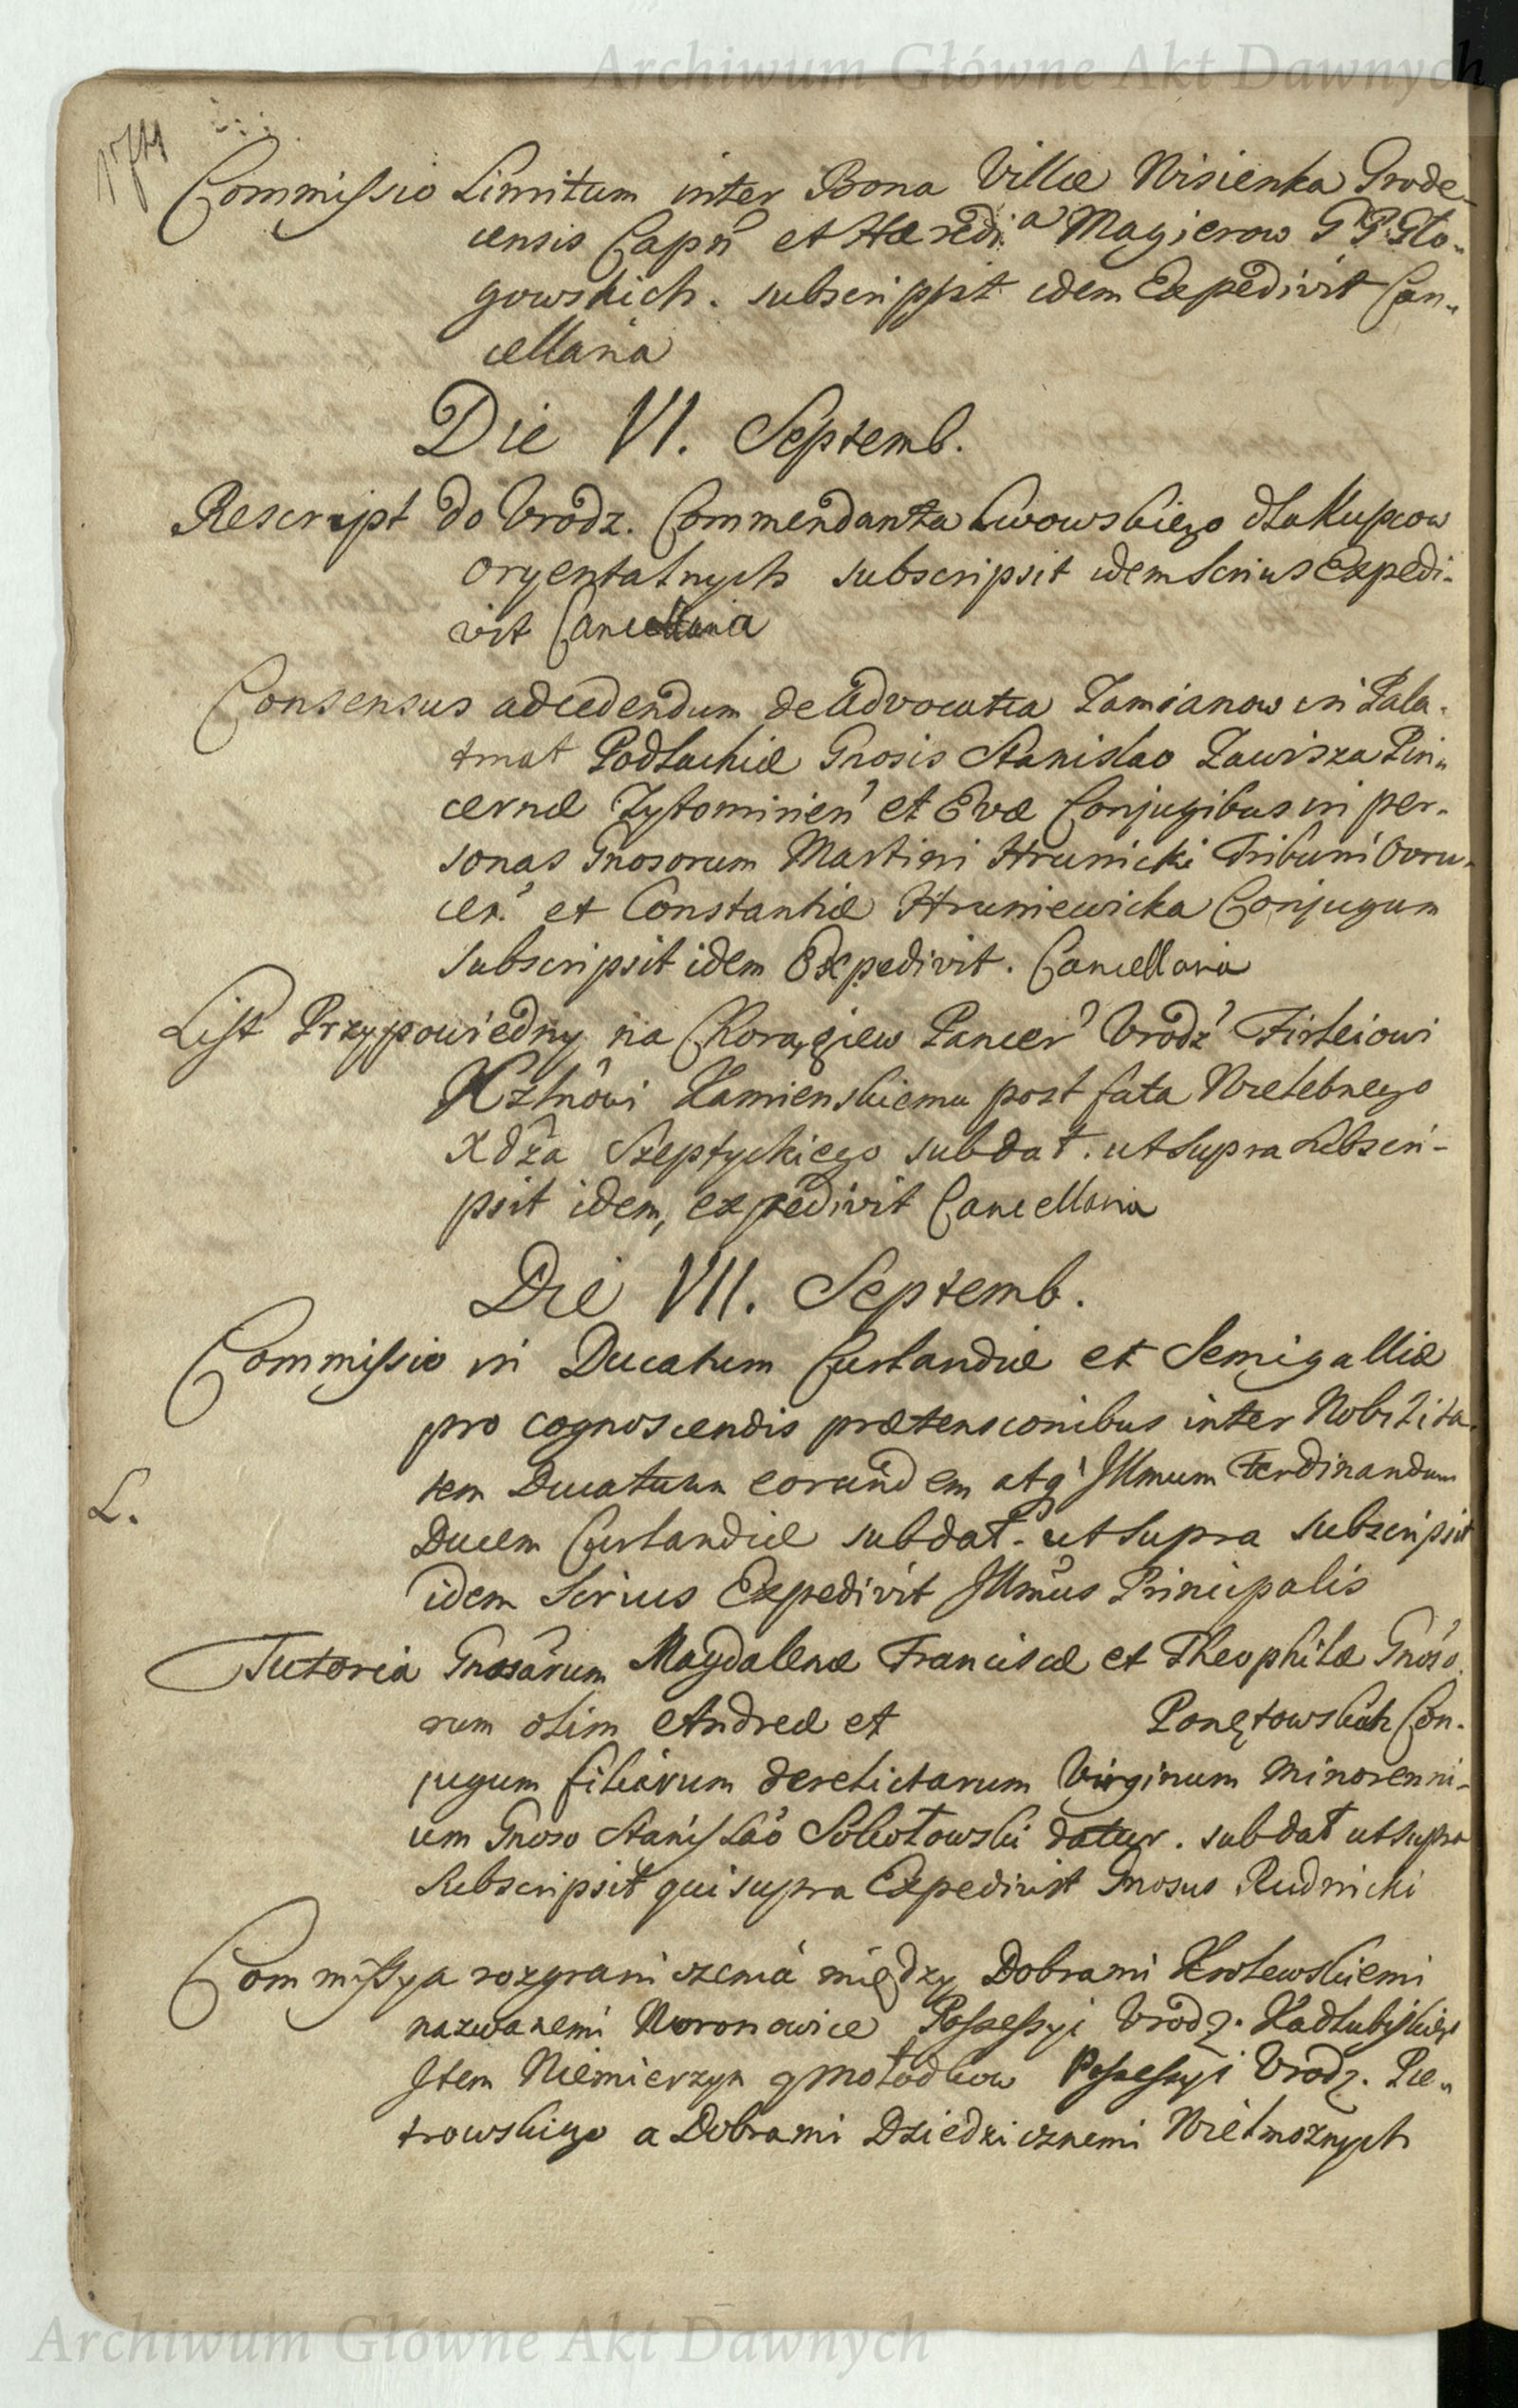 Archiwum Główne Akt Dawnych
Commissio Limitum inter Bona Villæ Wisienka Grode-
censis Capn et Hæredia Magierow G G Glo-
gowskich. subscripsit idem Expedivit Can-
cellaria
Die VI. Septemb.
Rescript do Vrodz. Commendanta Lwowskiego dla Kupcow
oryentalnych subscripsit idem Serius Expedi-
vit Cancellaria
Consensus ad cedendum de Advocatia Zamianow in Pala-
tinat Podlachiæ Gnosis Stanislao Zawisza Pin-
cernæ Zytomirien et Evæ Conjugibus in per-
sonas Gnosorum Martini Hrunicki Tribuni Ovru-
cen. et Constantiæ Hruniewicka Conjugum
subscripsit idem Expedivit. Cancellaria
List Przypowiedny na Chorągiew Pancer Vrodz Firleiowi
Kztnowi Kamienskiemu post fata Wielebnego
Xdza Szeptyckiego sub dat. ut supra subscri-
psit idem, expedivit Cancellaria
Die VII. Septemb.
Commissio in Ducatum Curlandiæ et Semigalliæ
pro cognoscendis prætensionibus inter Nobilita-
tem Ducatuum eorundem atq Illmum Ferdinandum
L.
Ducem Curlandiæ sub dat. ut supra subscripsit
idem Serius Expedivit Illmus Principalis
Tutoria Gnosarum Magdalenæ Franciscæ et Theophilæ Gnoso
rum olim Andreæ et Ponętowskich Con-
jugum filiarum derelictarum Virginum minorenni-
um Gnoso Stanislao Sokołowski datur. sub dat ut supra
Subscripsit qui supra Expedivit Gnosus Rudnicki
Commissya rozgraniczenia między Dobrami Krolewskiemi
nazwanemi Woronowice Possessyi Vrodz. Kadlubiskiego
Item Niemierzyn y Mołodkow Possessyi Vrodz. Pie-
trowskiego a Dobrami Dziedzicznemi Wielmoznych
Archiwum Główne Akt Dawnych